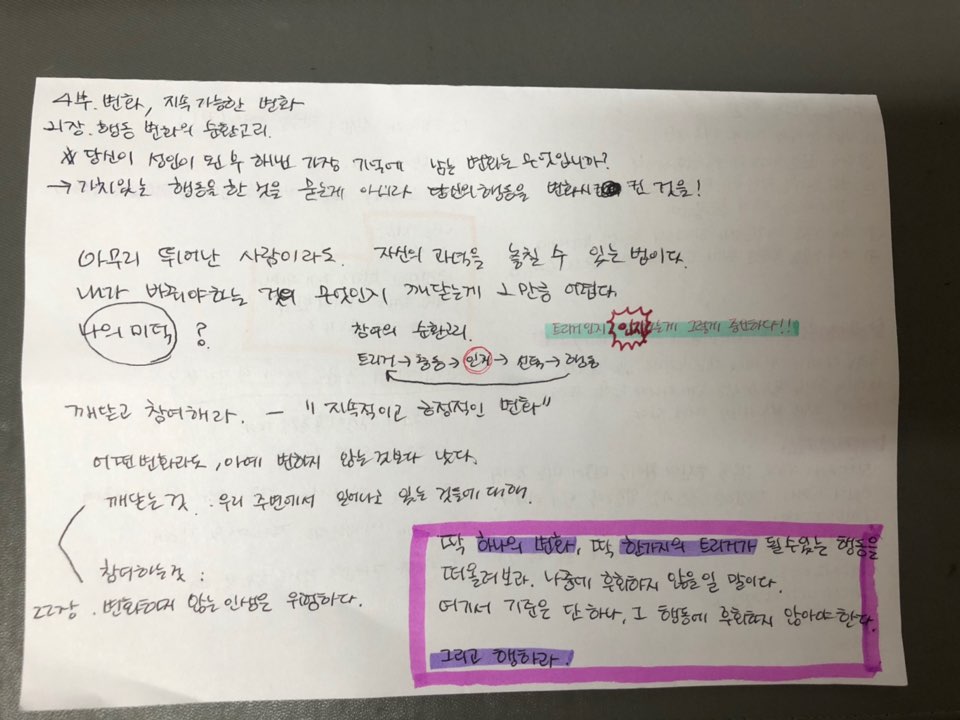 4부. 변화, 지속 가능한 변화
21장. 행동 변화의 순환고리.
* 당신이 성인이 된 후 해낸 가장 기억에 남는 변화는 무엇입니까?
→ 가치있는 행동을 한 것을 묻는게 아니라 당신의 행동을 변화시킨 것을!
아무리 뛰어난 사람이라도. 자신의 과덕을 놓칠 수 있는 법이다.
내가 바꿔야하는 것이 무엇인지 깨닫는게 그만큼 어렵다.
나의 미덕 ?
참여의 순환고리.
트리거 인지 인지하는게 그렇게 중요하다!!
트리거 → 충동 → 인지 → 선택 → 행동
깨닫고 참여해라. - "지속적이고 긍정적인 변화"
어떤변화라도, 아예 변하지 않는것보다 낫다.
깨닫는 것 : 우리 주변에서 일어나고 있는 것들에 대해.
참여하는 것 :
22장. 변화하지 않는 인생은 위험하다.
딱 하나의 변화, 딱 한가지의 트리거가 될수있는 행동을
떠올려보라. 나중에 후회하지 않을 일 말이다.
여기서 기준은 단 하나, 그 행동에 후회하지 않아야 한다.
그리고 행하라.